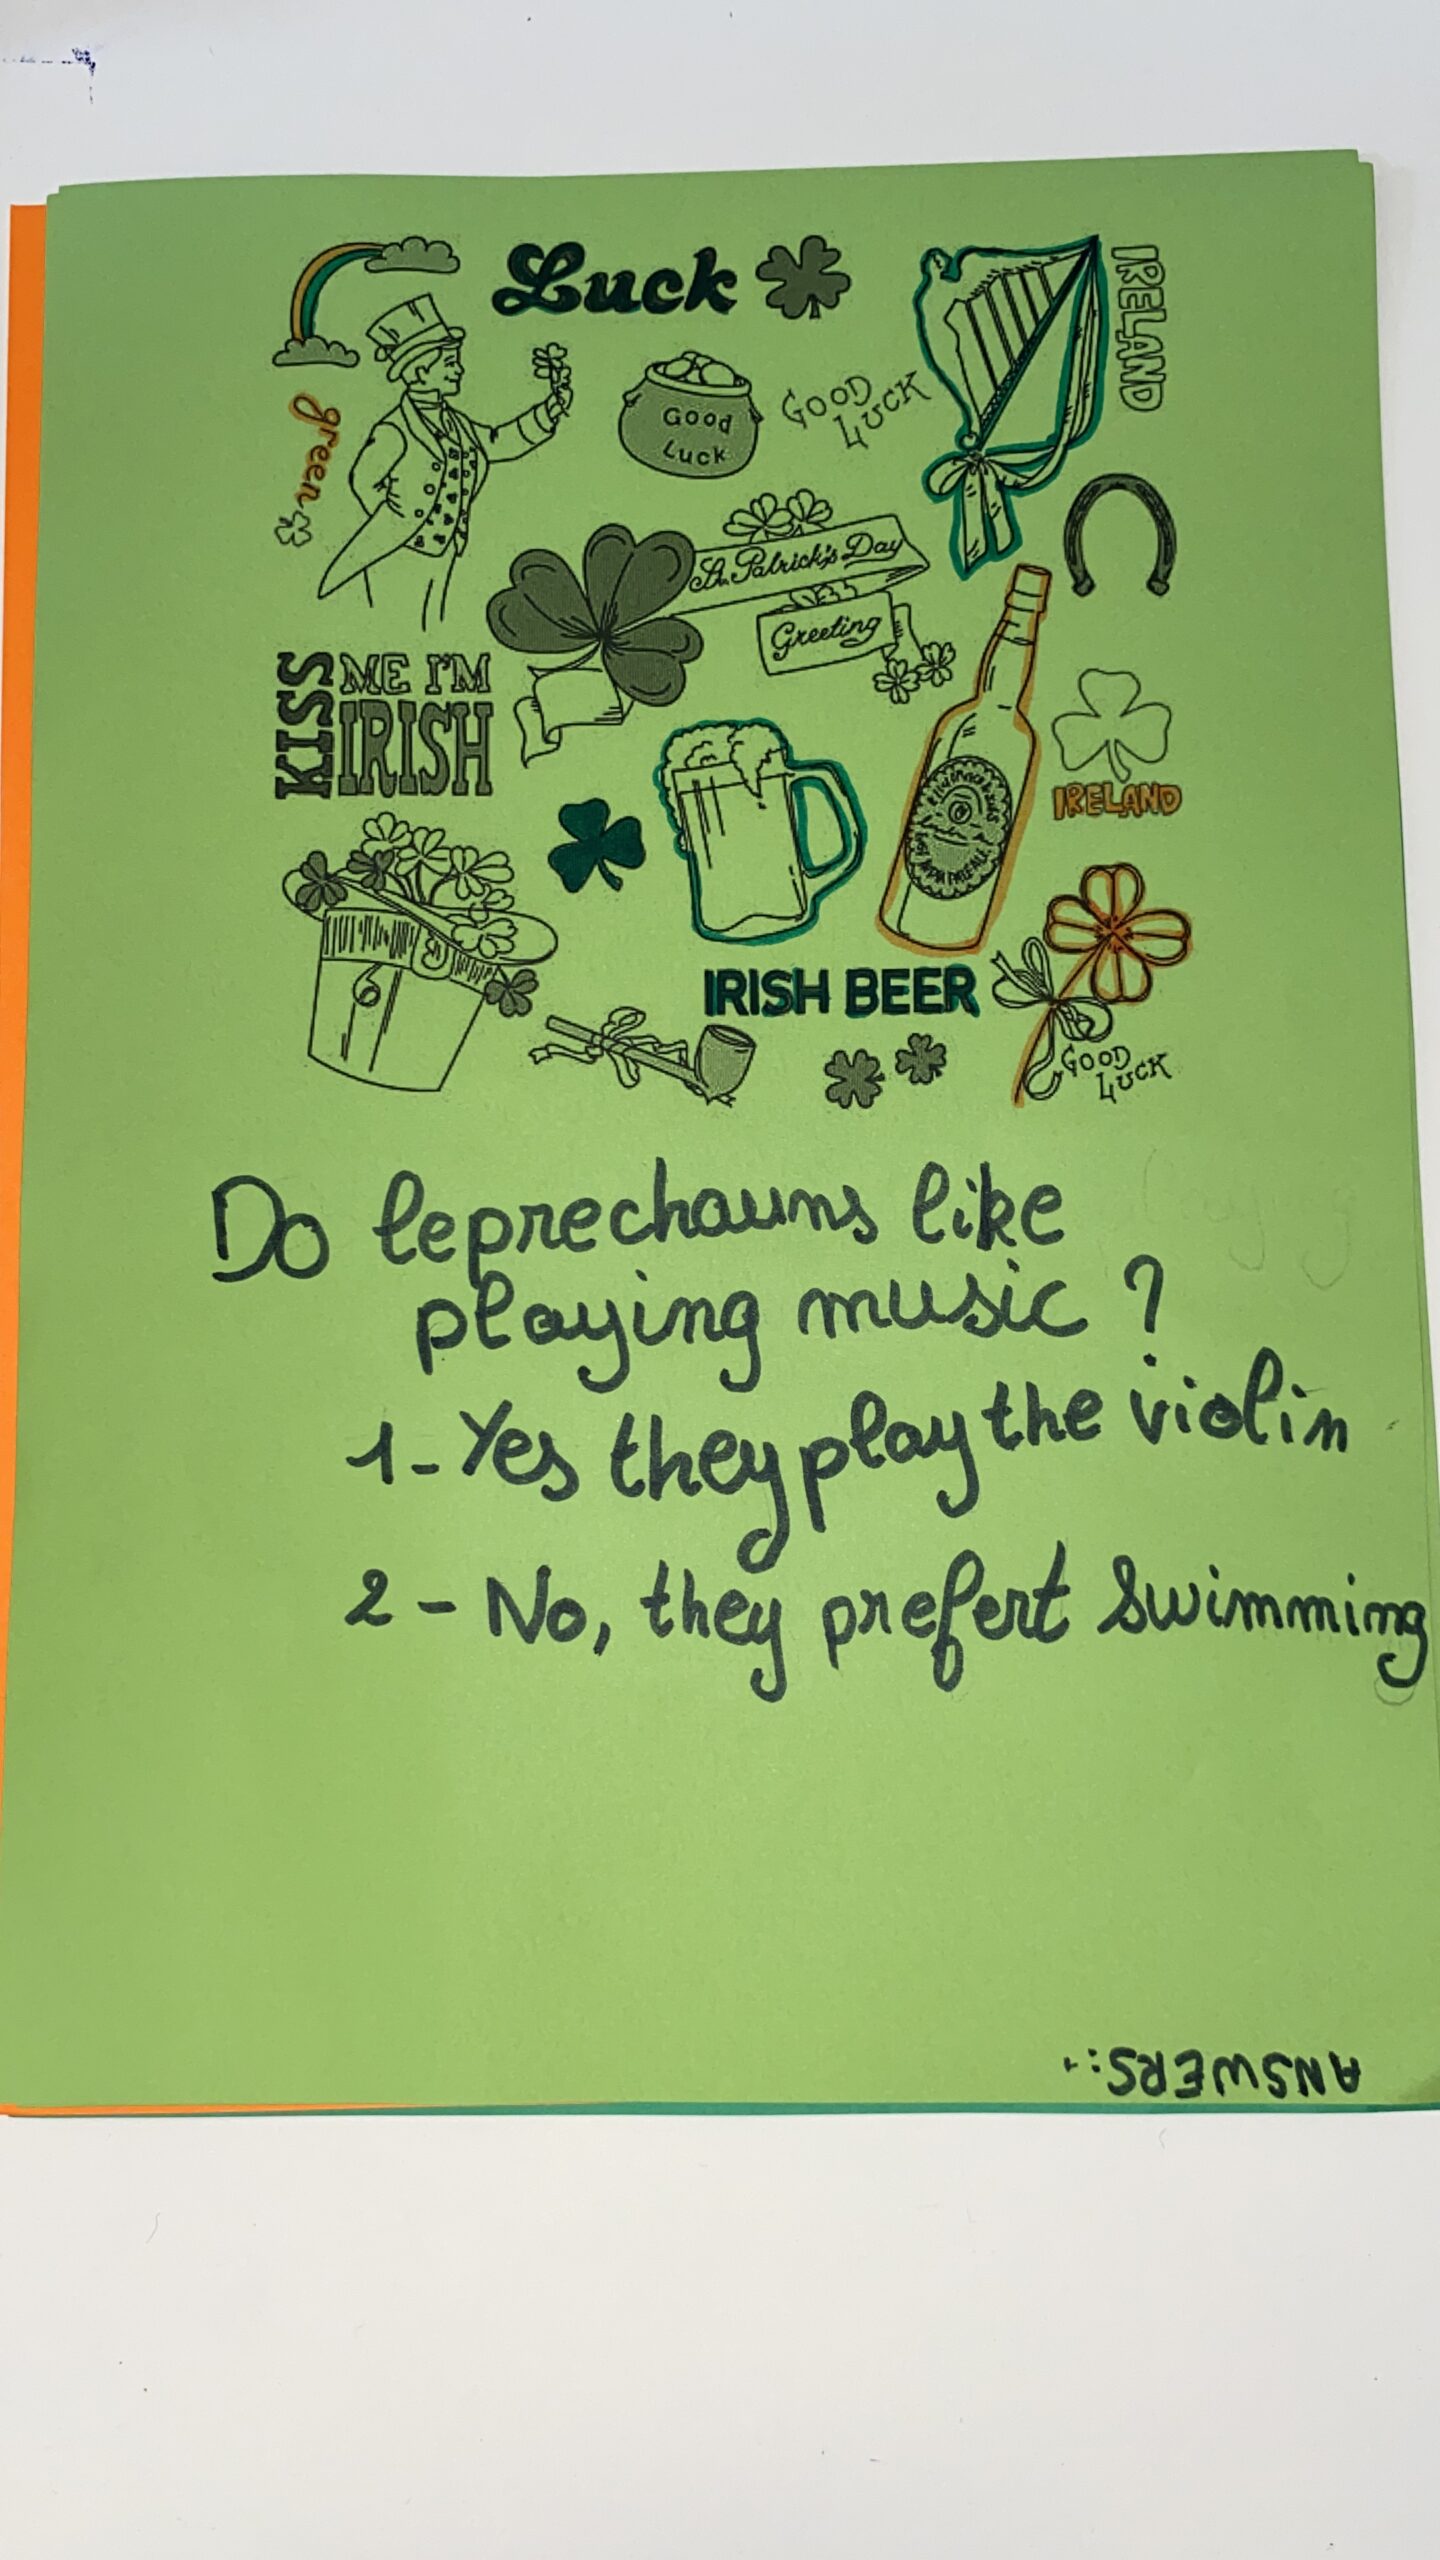 Luck
IRELAND
green
Good
Luck
GOOD
LUCK
St. Patrick's Day
Greeting
KISS ME I'M
IRISH
IRELAND
IRISH BEER
GOOD
LUCK
Do leprechauns like
playing music ?
1- Yes they play the violin
2 - No, they prefert swimming
ANSWERS: 1